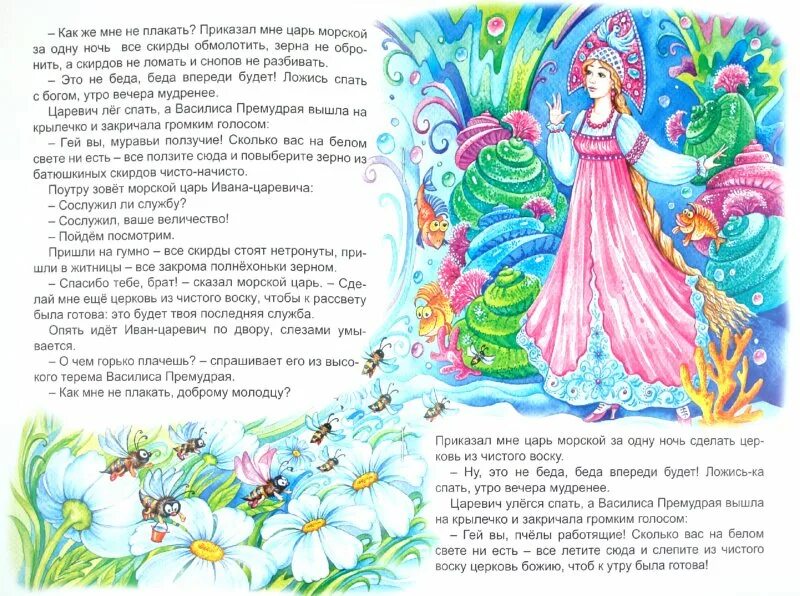 – Как же мне не плакать? Приказал мне царь морской
за одну ночь все скирды обмолотить, зерна не обро-
нить, а скирдов не ломать и снопов не разбивать.
– Это не беда, беда впереди будет! Ложись спать
с богом, утро вечера мудренее.
Царевич лёг спать, а Василиса Премудрая вышла
на крылечко и закричала громким голосом:
– Гей вы, муравьи ползучие! Сколько вас на белом
свете ни есть – все ползите сюда и повыберите зерно из
батюшкиных скирдов чисто-начисто.
Поутру зовёт морской царь Ивана-царевича:
– Сослужил ли службу?
– Сослужил, ваше величество!
– Пойдём посмотрим.
Пришли на гумно – все скирды стоят нетронуты, при-
шли в житницы – все закрома полнёхоньки зерном.
– Спасибо тебе, брат! – сказал морской царь. – Сде-
лай мне ещё церковь из чистого воску, чтобы к рассвету
была готова: это будет твоя последняя служба.
Опять идёт Иван-царевич по двору, слезами умы-
вается.
– О чем горько плачешь? – спрашивает его из высо-
кого терема Василиса Премудрая.
– Как мне не плакать, доброму молодцу?
Приказал мне царь морской за одну ночь сделать цер-
ковь из чистого воску.
– Ну, это не беда, беда впереди будет! Ложись-ка
спать, утро вечера мудренее.
Царевич улёгся спать, а Василиса Премудрая вышла
на крылечко и закричала громким голосом:
– Гей вы, пчёлы работящие! Сколько вас на белом
свете ни есть – все летите сюда и слепите из чистого
воску церковь божию, чтоб к утру была готова!